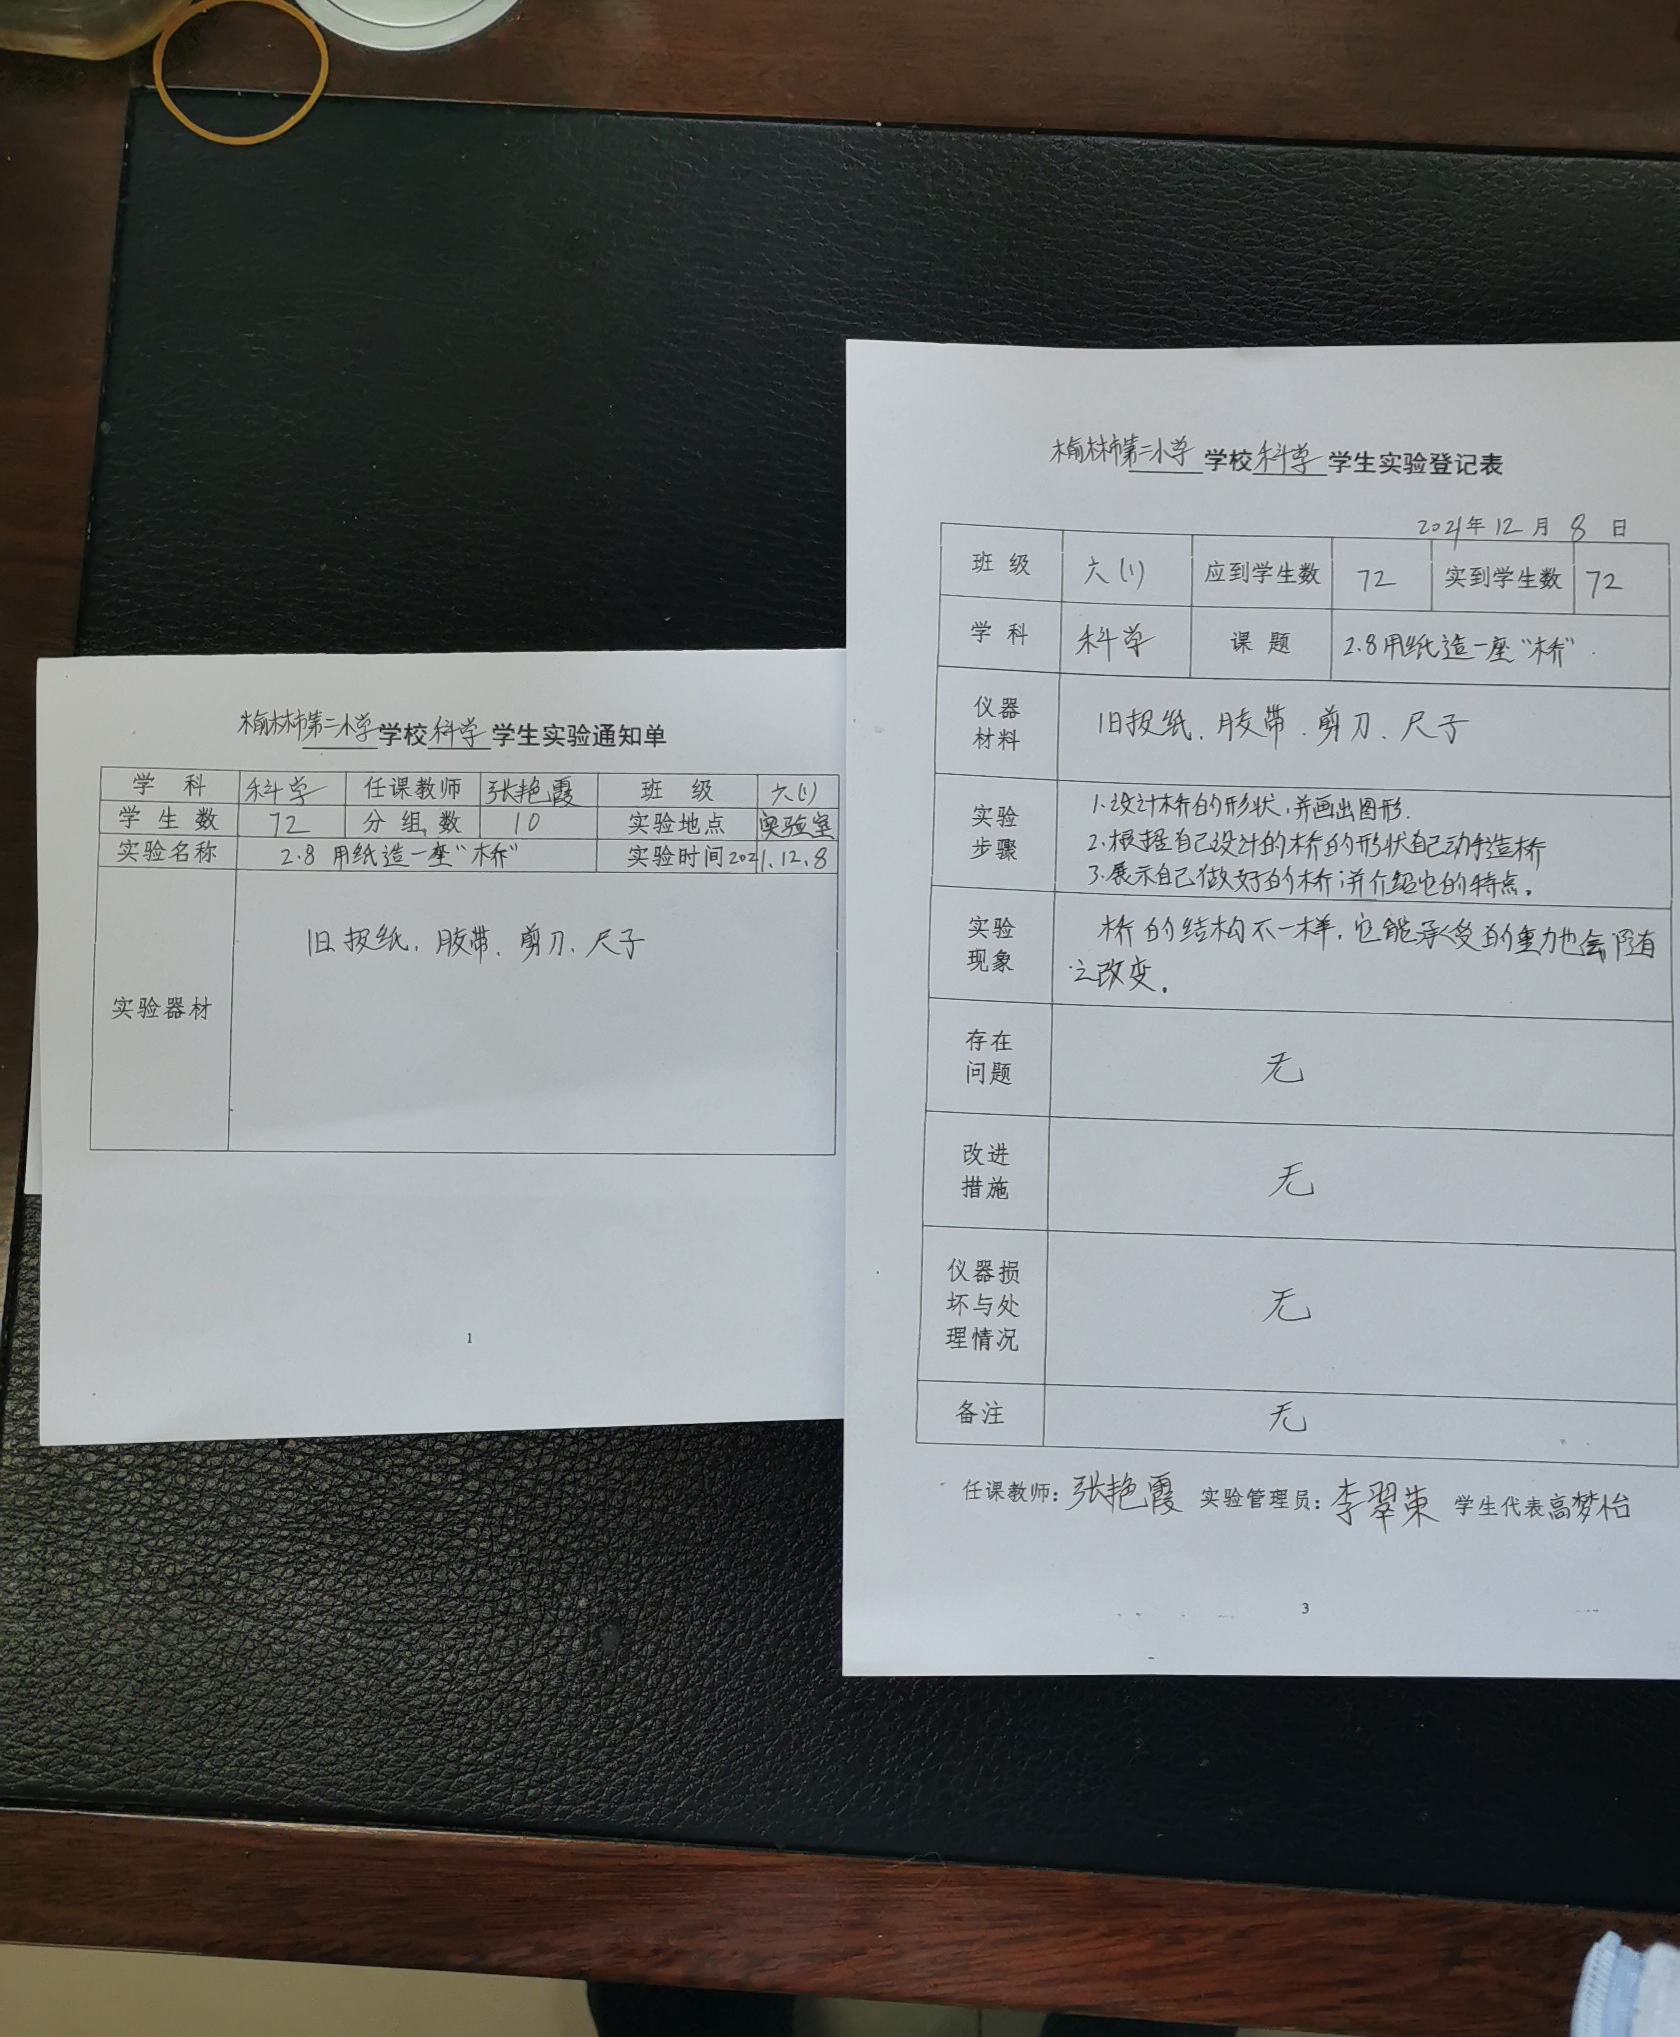 榆林市第二小学学校科学学生实验通知单
学 科 科学 任课教师 张艳霞 班 级 六(1)
学 生 数 72 分 组 数 10 实验地点 实验室
实验名称 2.8 用纸造一座“桥” 实验时间 2021.12.8
实验器材 旧报纸、胶带、剪刀、尺子
1
榆林市第二小学学校科学学生实验登记表
2021年12月8日
班 级 六(1) 应到学生数 72 实到学生数 72
学 科 科学 课 题 2.8用纸造一座“桥”
仪器
材料
旧报纸、胶带、剪刀、尺子
实验
步骤
1.设计桥的形状,并画出图形.
2.根据自己设计的桥的形状自己动手造桥
3.展示自己做好的桥,并介绍它的特点。
实验
现象
桥的结构不一样,它能承受的重力也会随
之改变。
存在
问题
无
改进
措施
无
仪器损
坏与处
理情况
无
备注 无
任课教师:张艳霞 实验管理员:李翠 学生代表高梦怡
3